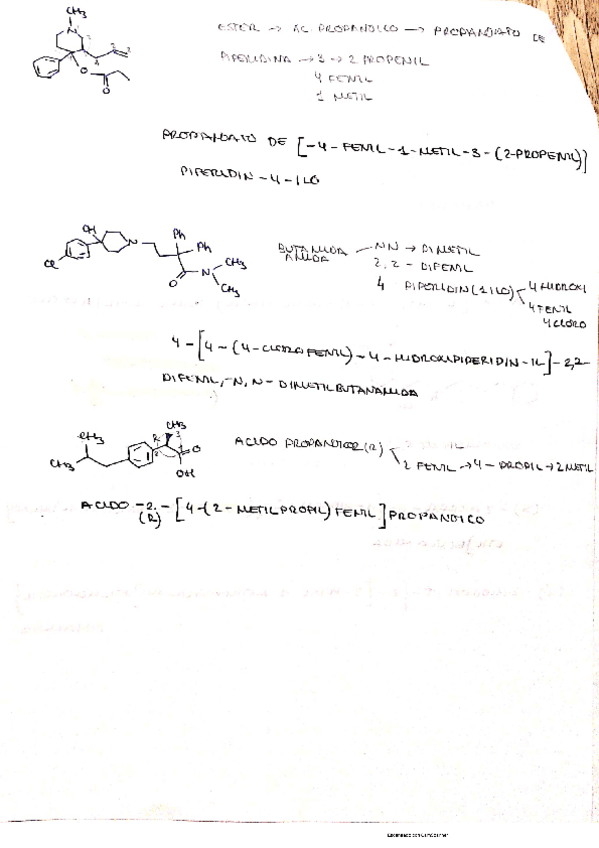 CH3
N
O
O
ESTER → AC PROPANOICO → PROPANOATO DE
PIPERIDINA → 3 → 2 PROPENIL
4 FENIL
1 METIL
PROPANOATO DE [-4-FENIL-1-METIL-3-(2-PROPENIL)]
PIPERIDIN-4-ILO
OH
Cl
N
Ph
Ph
O
N
CH3
CH3
BUTANAMIDA
AMIDA
NN → DIMETIL
2,2-DIFENIL
4 PIPERIDIN(1 ILO)
4 HIDROXI
4 FENIL
4 CLORO
4-[4-(4-CLOROFENIL)-4-HIDROXIPIPERIDIN-IL]-2,2-
DIFENIL,-N,N-DIMETILBUTANAMIDA
CH3
CH3
CH3
R
3
O
OH
ACIDO PROPANOICO(R)
2 FENIL → 4-PROPIL → 2 METIL
ACIDO -2-[4-(2-METILPROPIL)FENIL]PROPANOICO
(R)
Escaneado con CamScanner